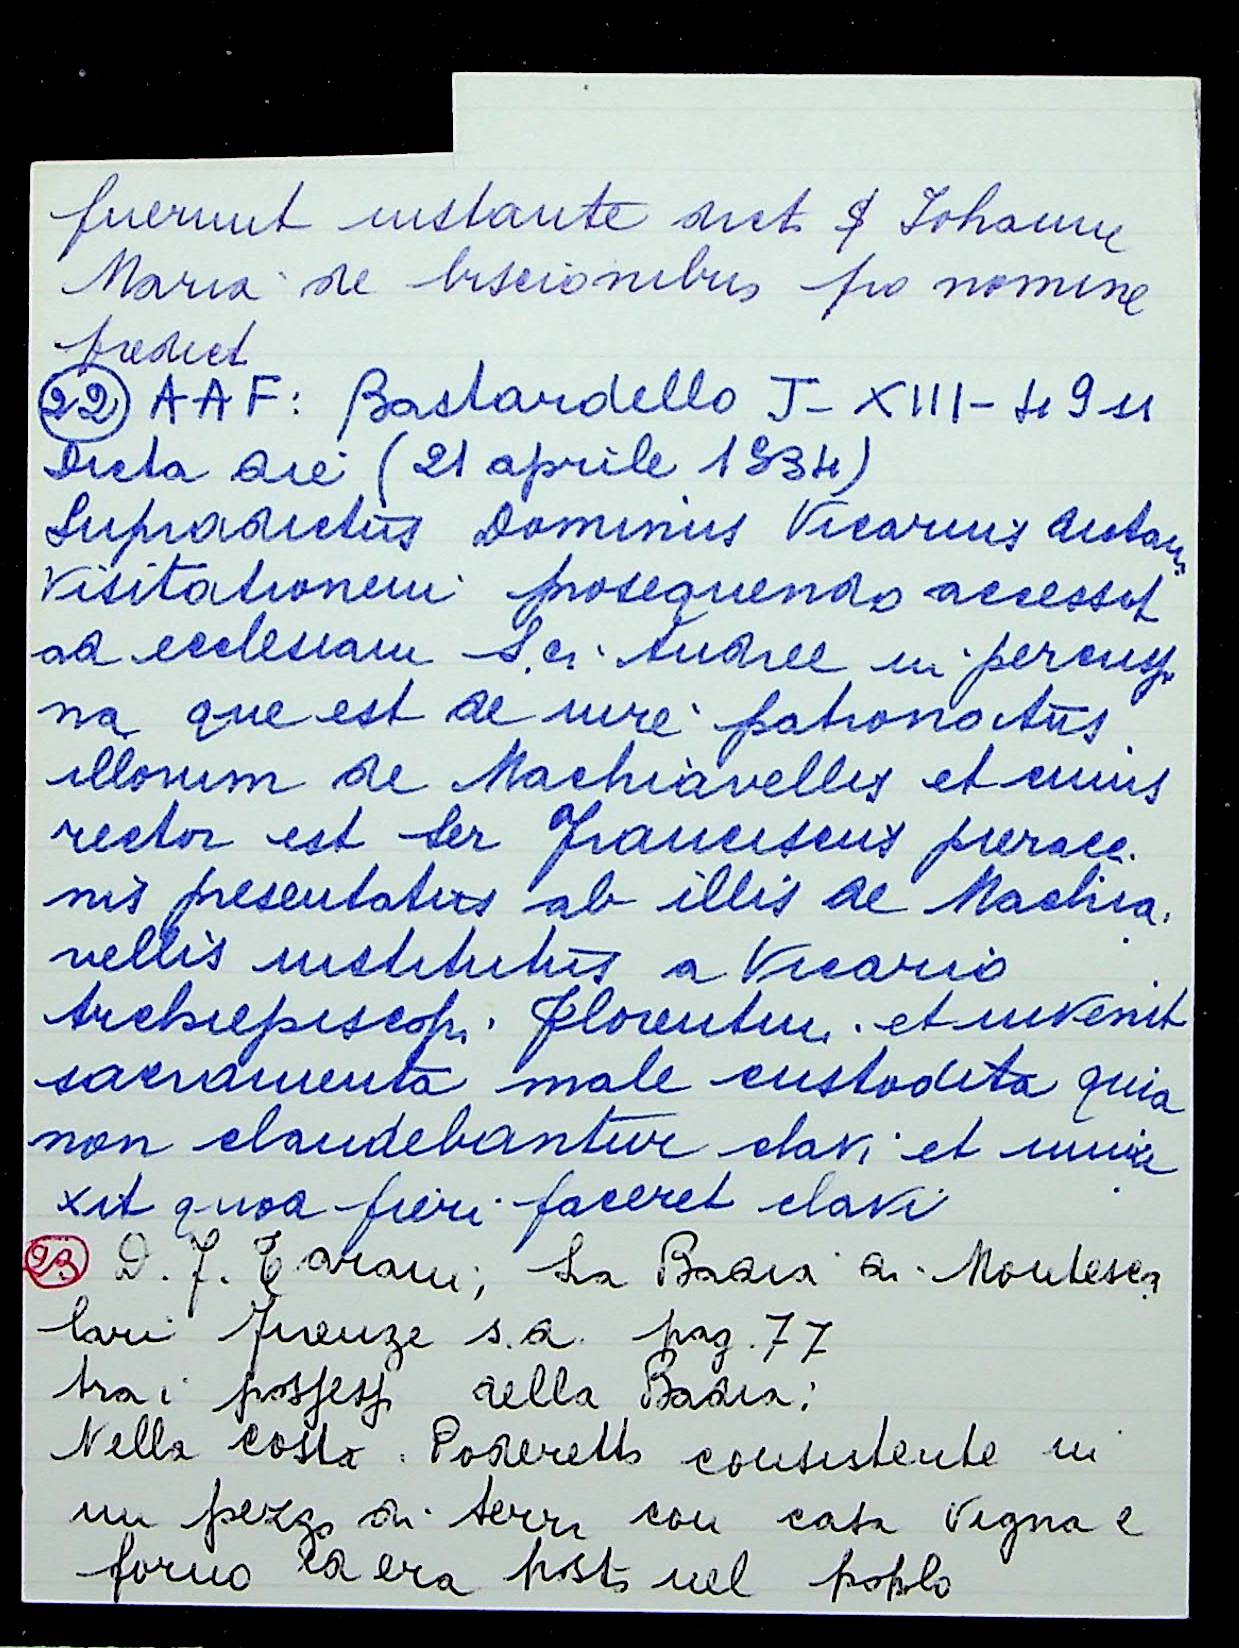 fuerunt instante dict. $ Johanne
Maria de biscionibus pro nomine
predict
22 AAF: Bastardello J- XIII- 49
Dicta die (21 aprile 1534)
Supradictus Dominus Vicarius dictam
Visitationem prosequendo accessit
ad ecclesiam S.ci Andree in percussi
na que est de iure patronatus
illorum de Machiavellis et cuius
rector est Ser Franciscus pieracc.
nis presentatus ab illis de Machia.
vellis institutus a Vicario
Archiepiscopi Florentin. et invenit
sacramenta male custodita quia
non claudebantur clavi et iniun
xit quod fieri faceret clavi
23 D. F. Tarani; La Badia di Montesca
lari Firenze s.d. pag. 77
tra i possessi della Badia:
Nella costa. Poderetto consistente in
un pezzo di terra con casa vigna e
forno ed era posto nel popolo